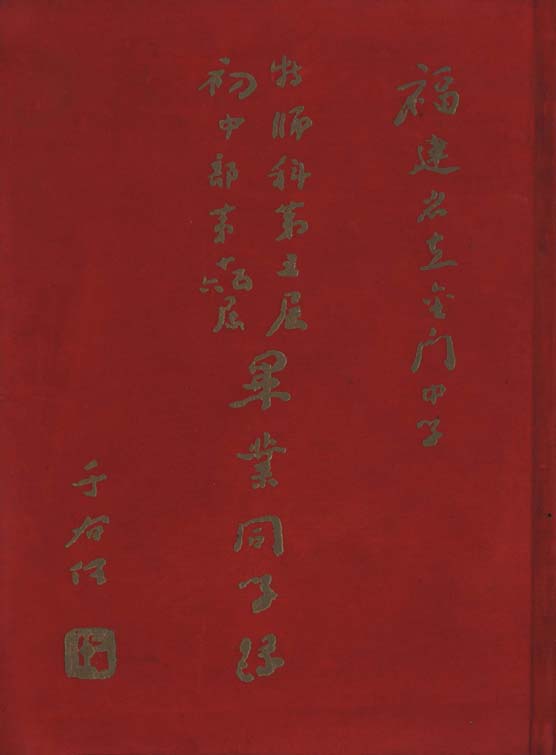 福建省立金門中學
特師科第五屆
初中部第十五六屆
畢業同學錄
于右任